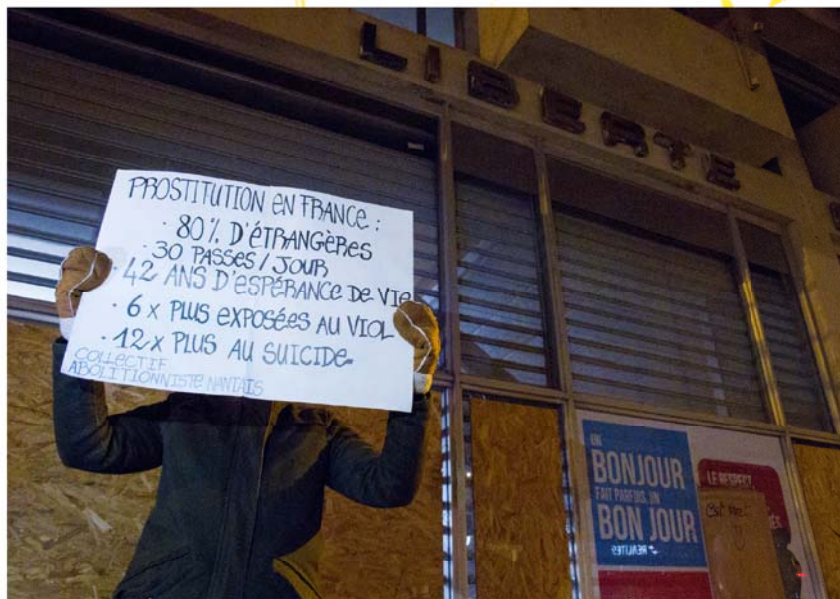 LIBERTE
PROSTITUTION EN FRANCE :
· 80% D'ÉTRANGÈRES
· 30 PASSES / JOUR
· 42 ANS D'ESPÉRANCE DE VIE
· 6 x PLUS EXPOSÉES AU VIOL
· 12 x PLUS AU SUICIDE
COLLECTIF
ABOLITIONNISTE NANTAIS
UN
BONJOUR
FAIT PARFOIS UN
BON JOUR
LE RESPECT